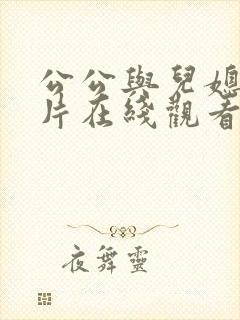 公公與兒媳
片在綫觀看
夜舞靈